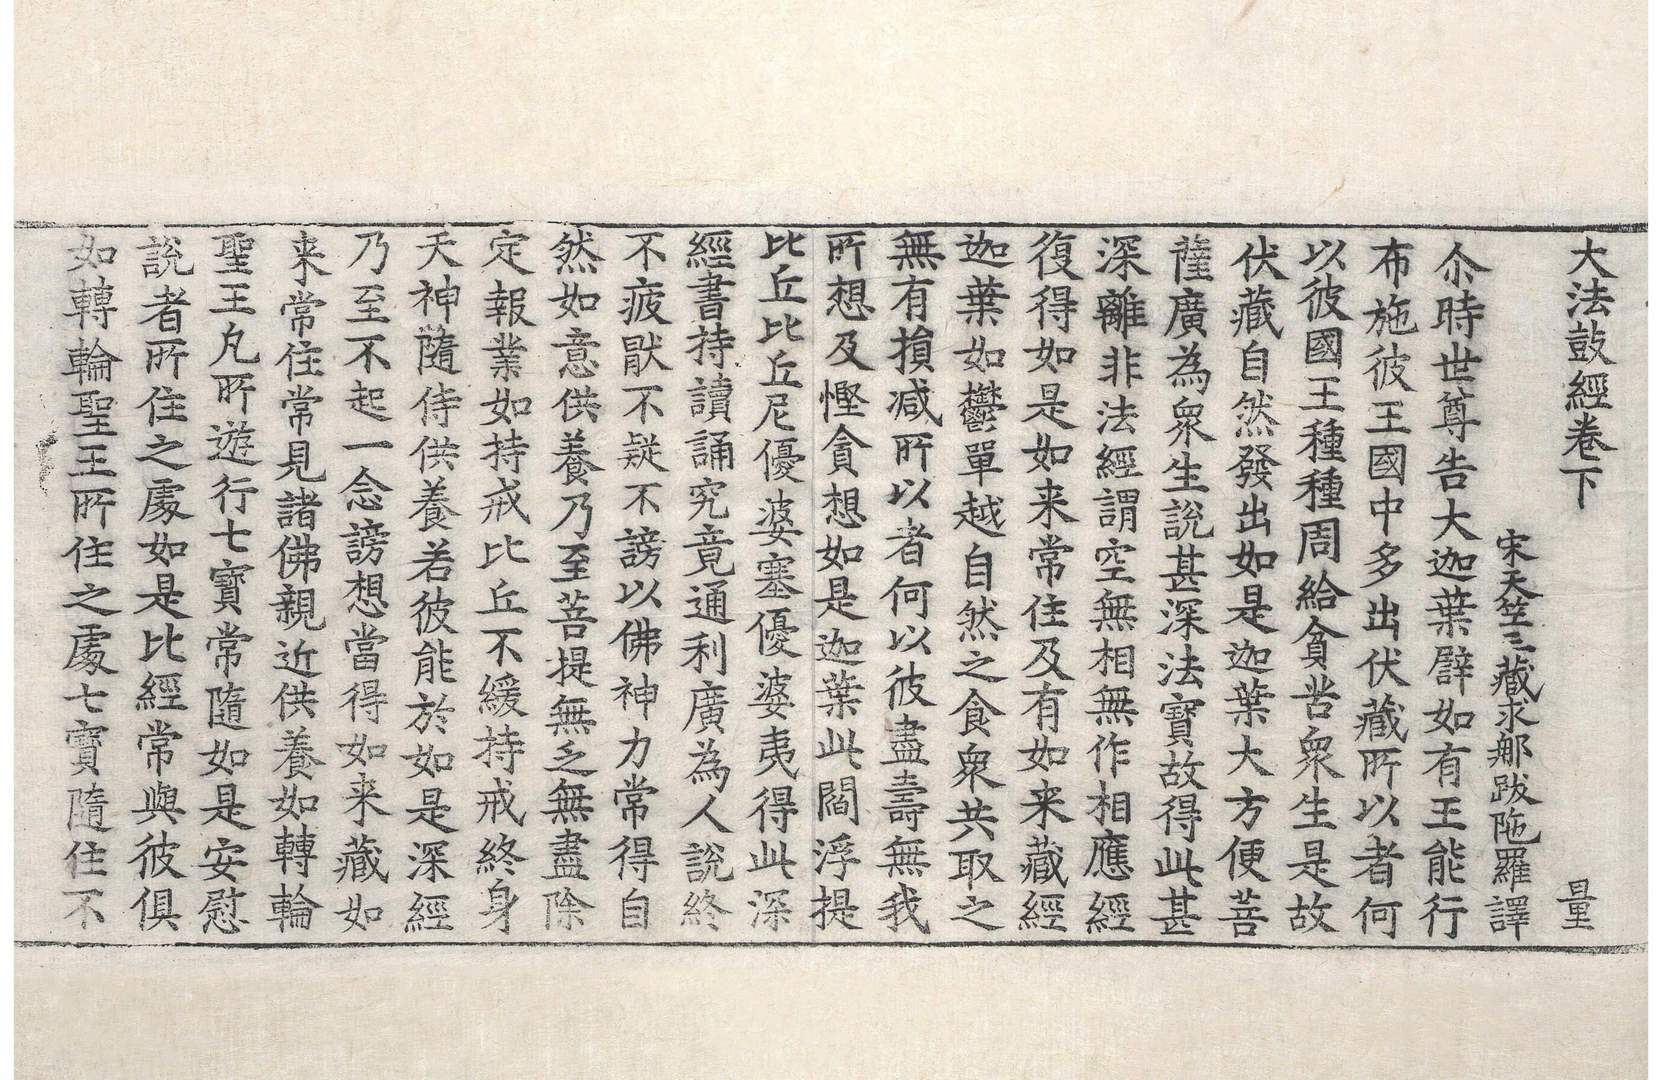 大法鼓經卷下　量
宋天竺三藏求那跋陁羅譯
尒時世尊告大迦葉譬如有王能行
布施彼王國中多出伏藏所以者何
以彼國王種種周給貧苦衆生是故
伏藏自然發出如是迦葉大方便菩
薩廣為衆生說甚深法寶故得此甚
深離非法經謂空無相無作相應經
復得如是如来常住及有如来藏經
迦葉如鬱單越自然之食衆共取之
無有損减所以者何以彼盡壽無我
所想及慳貪想如是迦葉此閻浮提
比丘比丘尼優婆塞優婆夷得此深
經書持讀誦究竟通利廣為人說終
不疲猒不疑不謗以佛神力常得自
然如意供養乃至菩提無乏無盡除
定報業如持戒比丘不緩持戒終身
天神隨侍供養若彼能於如是深經
乃至不起一念謗想當得如来藏如
来常住常見諸佛親近供養如轉輪
聖王凡所遊行七寶常隨如是安慰
說者所住之處如是比經常與彼俱
如轉輪聖王所住之處七寶隨住不